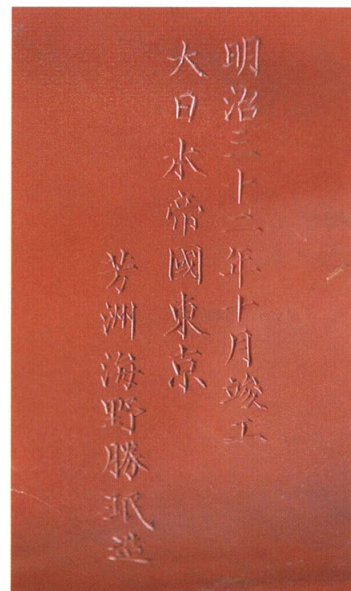 明治三十二年十月竣工
大日本帝國東京
芳洲海野勝珉造